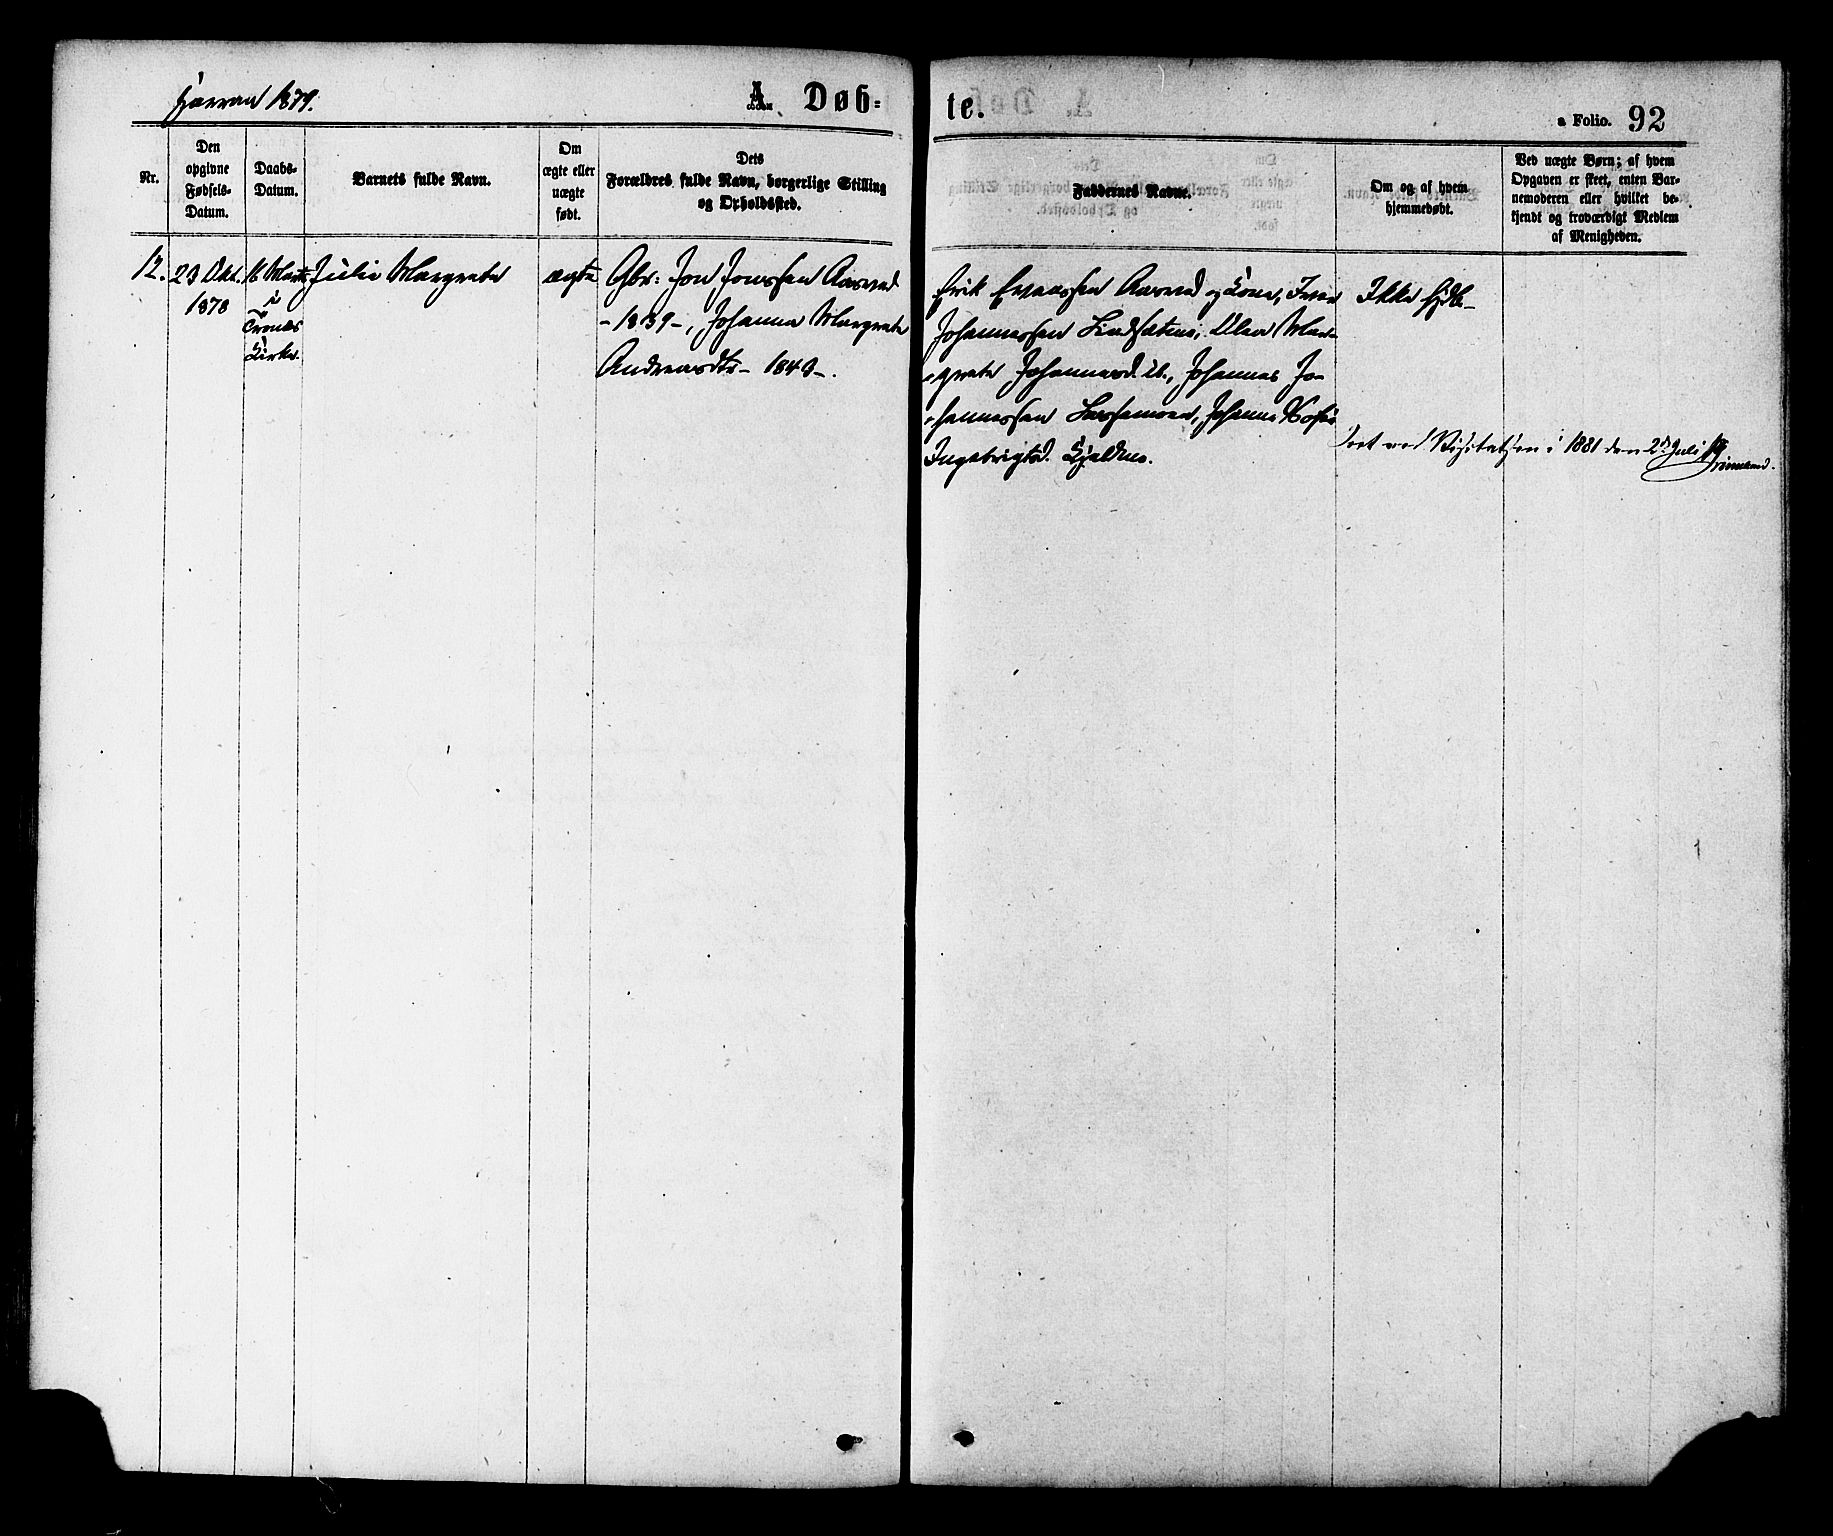 Harran 1879.
A. Døb-
te.
a Folio. 92
Nr.
Den
opgivne
Fødsels-
Datum.
Daabs-
Datum.
Barnets fulde Navn.
Om
ægte eller
uægte
født.
Dets
Forældres fulde Navn, borgerlige Stilling
og Opholdssted.
Faddernes Navne.
Om og af hvem
hjemmedøbt.
Ved uægte Børn; af hvem
Opgaven er skeet, enten Bar-
nemoderen eller hvilket be-
kjendt og troværdigt Medlem
af Menigheden.
12.
23 Okt.
1878
16 Marts
i
Trones
Kirke.
Julie Margrete
ægte
Gbr: Jon Jonssen Aasved
- 1839 -, Johanna Margrete
Andreasdtr - 1843 -.
Erik Aasved og Kone, Iver
Johannessen Lindsetmo; Olea Mar-
grete Johannesd. ib., Johannes Jo-
hannessen Lassemoen, Johanna
Ingebrigtsd. Kjelmo.
Ikke Hjdb-
ved Visitatsen i 1881 den 2d Juli